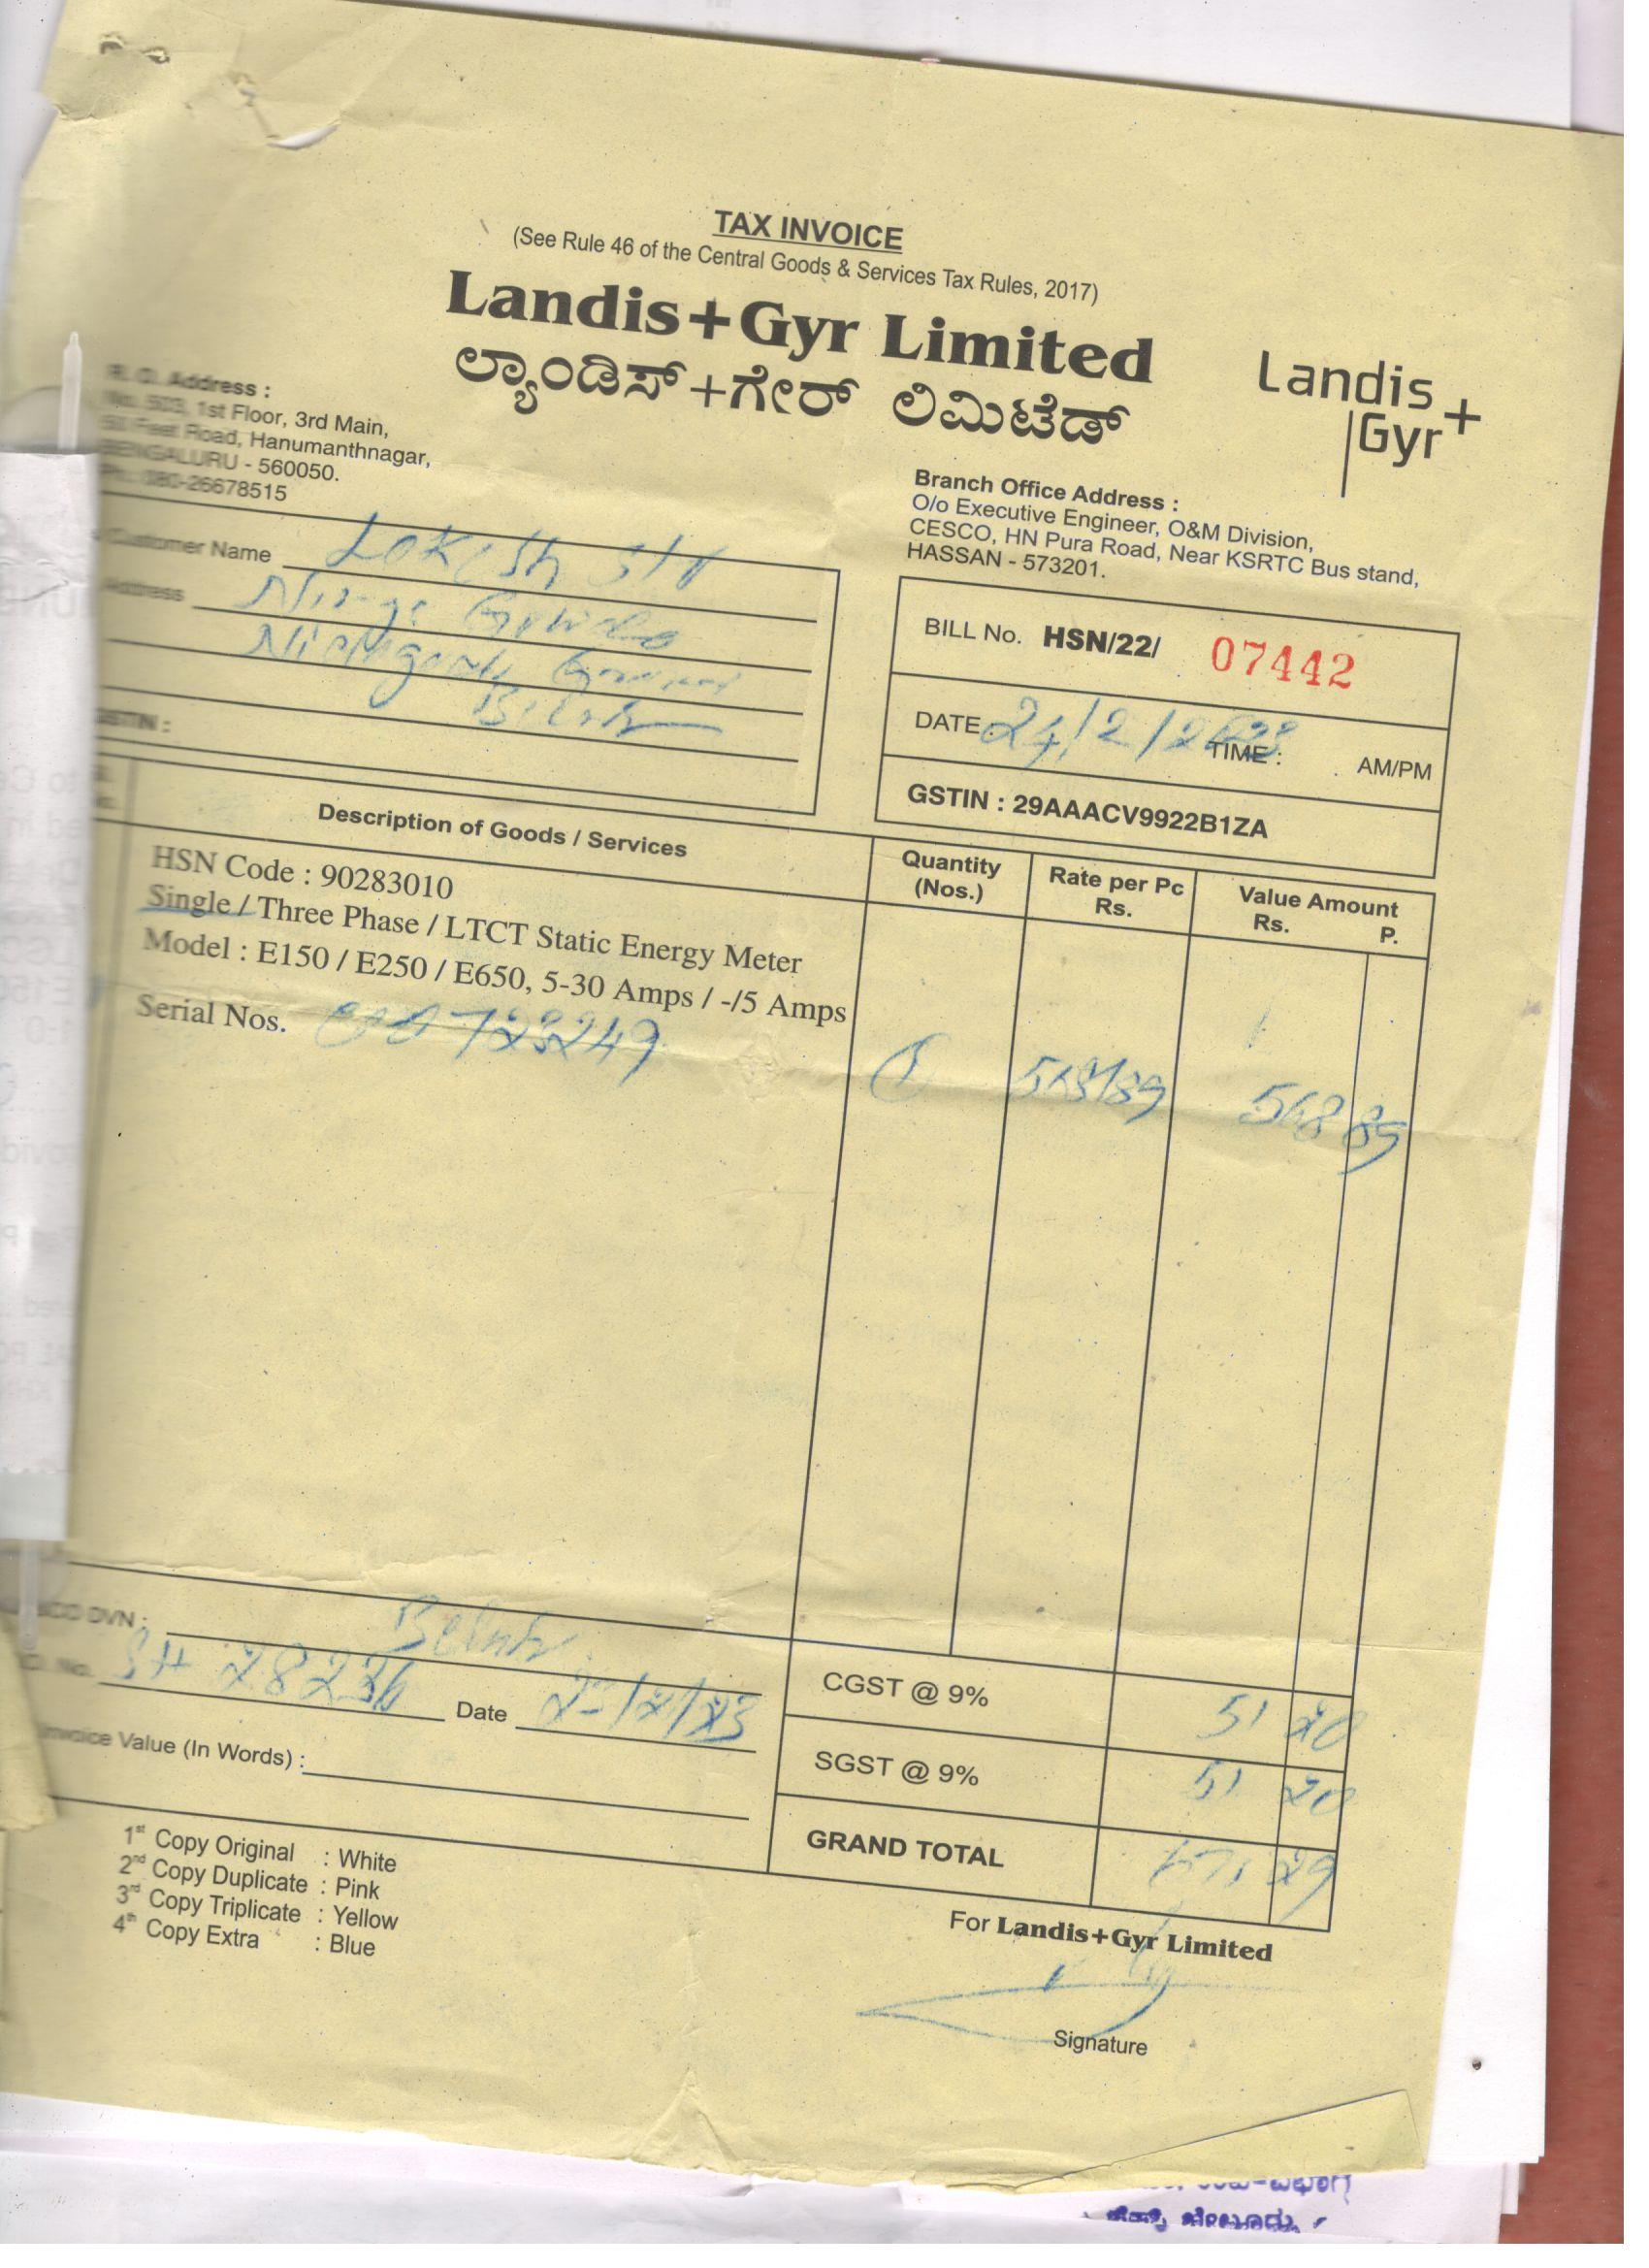 TAX INVOICE
(See Rule 46 of the Central Goods & Services Tax Rules, 2017)
Landis+Gyr Limited
ಲ್ಯಾಂಡಿಸ್+ಗೇರ್ ಲಿಮಿಟೆಡ್
Landis
Gyr+
R. O. Address :
No. 503, 1st Floor, 3rd Main,
50 Feet Road, Hanumanthnagar,
BENGALURU - 560050.
Ph.: 080-26678515
Branch Office Address :
O/o Executive Engineer, O&M Division,
CESCO, HN Pura Road, Near KSRTC Bus stand,
HASSAN - 573201.
Customer Name Lokesh S/o
Address
Gowda
GSTIN :
BILL No. HSN/22/ 07442
DATE 24/2/2023 TIME : AM/PM
GSTIN : 29AAACV9922B1ZA
Description of Goods / Services
Quantity (Nos.)
Rate per Pc Rs.
Value Amount Rs. P.
HSN Code : 90283010
Single / Three Phase / LTCT Static Energy Meter
Model : E150 / E250 / E650, 5-30 Amps / -/5 Amps
Serial Nos. 723249
568/89 568 89
DVN : Belur
No. 28236 Date
Invoice Value (In Words) :
CGST @ 9% 51 20
SGST @ 9% 51 20
GRAND TOTAL 671 29
1st Copy Original : White
2nd Copy Duplicate : Pink
3rd Copy Triplicate : Yellow
4th Copy Extra : Blue
For Landis+Gyr Limited
Signature